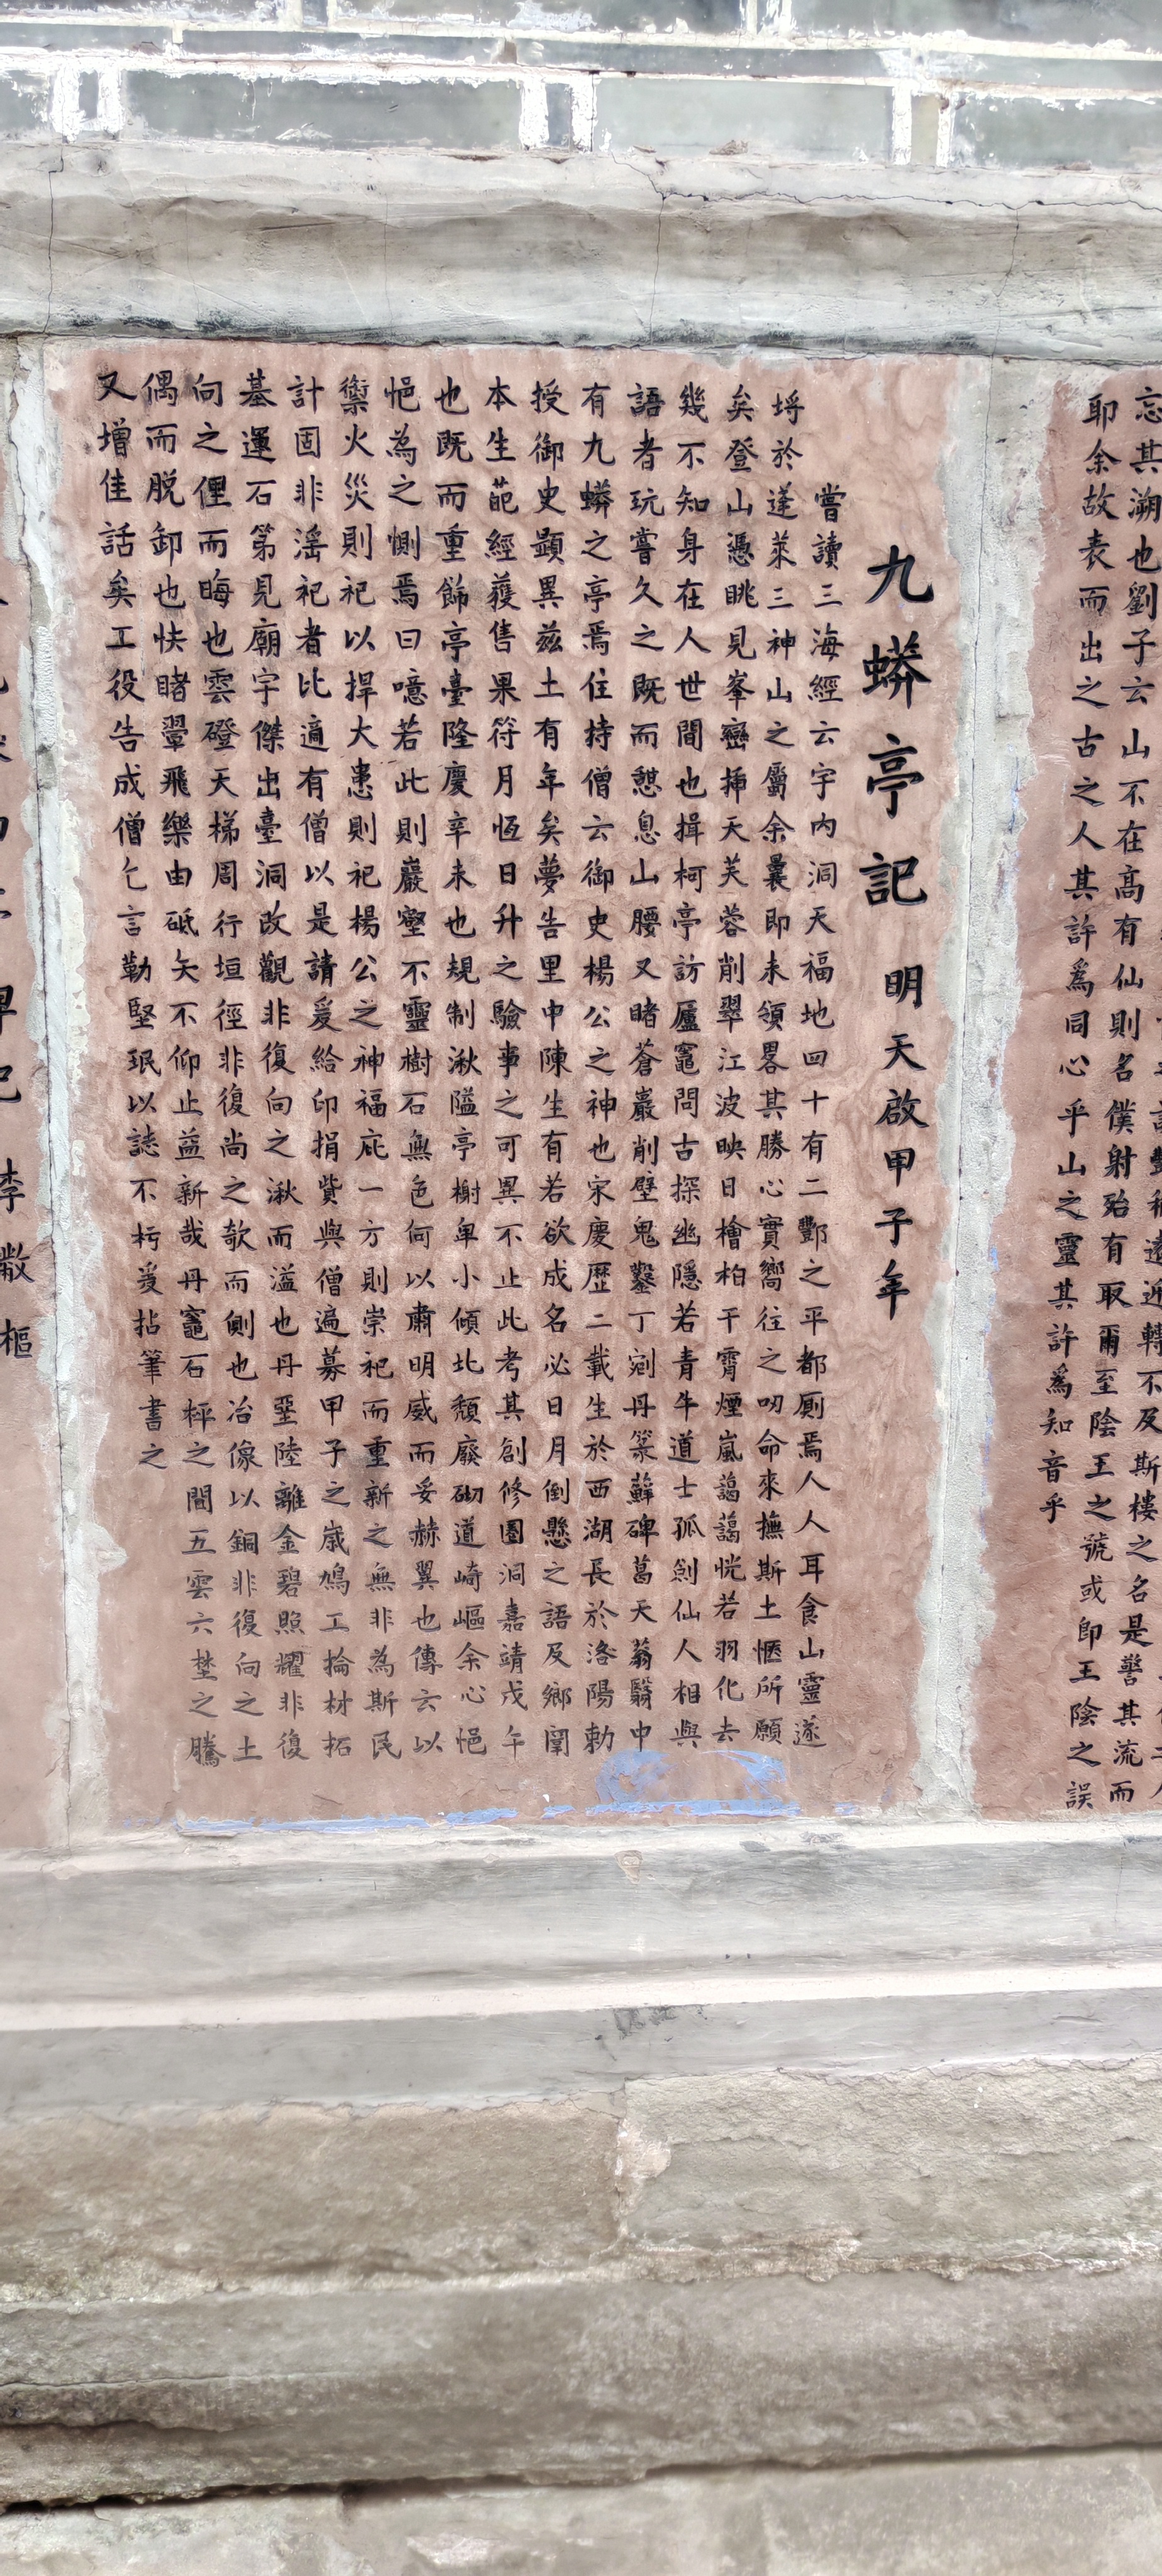 忘其溯也劉子云山不在高有仙則名僕射殆有取爾至陰王之號或即王陰之誤
耶余故表而出之古之人其許爲同心乎山之靈其許爲知音乎
九蟒亭記 明天啟甲子年
嘗讀三海經云宇内洞天福地四十有二酆之平都厠焉人人耳食山靈遂
埒於蓬萊三神山之屬余曩即未領畧其勝心實嚮往之叨命來撫斯土愜所願
矣登山憑眺見峯巒揷天芙蓉削翠江波映日檜柏干霄煙嵐藹藹恍若羽化去
幾不知身在人世間也揖柯亭訪廬竈問古探幽隱若青牛道士孤劍仙人相與
語者玩嘗久之既而憇息山腰又睹蒼巖削壁鬼鑿丁剜丹篆蘚碑葛天蓊翳中
有九蟒之亭焉住持僧云御史楊公之神也宋慶歷二載生於西湖長於洛陽勅
授御史顯異兹土有年矣夢告里中陳生有若欲成名必日月倒懸之語及鄉闈
本生葩經獲售果符月恆日升之驗事之可異不止此考其創修圕洞嘉靖戊午
也既而重飾亭臺隆慶辛未也規制湫隘亭榭卑小傾圮頹廢砌道崎嶇余心悒
悒為之惻焉曰噫若此則巖壑不靈樹石無色何以肅明威而妥赫翼也傳云以
禦火災則祀以捍大患則祀楊公之神福庇一方則崇祀而重新之無非為斯民
計固非滛祀者比適有僧以是請爰給印捐貲與僧遍募甲子之歳鳩工掄材拓
基運石第見廟宇傑出臺洞改觀非復向之湫而溢也丹堊陸離金碧照耀非復
向之俚而晦也雲磴天梯周行垣徑非復尚之欹而側也冶像以銅非復向之土
偶而脱卸也快睹翬飛樂由砥矢不仰止益新哉丹竈石枰之間五雲六埜之騰
又增佳話矣工役告成僧乞言勒堅珉以誌不朽爰拈筆書之
李
樞